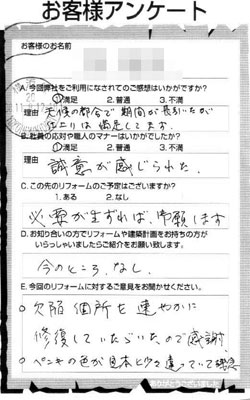 お客様アンケート
お客様のお名前
A. 今回弊社をご利用になされてのご感想はいかがですか?
1.満足 2.普通 3.不満
理由 天候の都合で期間が長引いたが
仕上りは満足してます。
B. 社員の応対や職人のマナーはいかがでしたか?
1.満足 2.普通 3.不満
理由 誠意が感じられた.
C. この先のリフォームのご予定はございますか?
1.ある 2.なし
必要が生ずれば、御願します
D. お知り合いの方でリフォームや建築計画をお持ちの方が
いらっしゃいましたらご紹介をお願い致します。
今のところ、なし.
E. 今回のリフォームに対するご意見をお聞かせください。
○ 欠陥個所を速やかに
修復していただいたので感謝.
○ ペンキの色が見本と少々違っていて残念
ありがとうございました